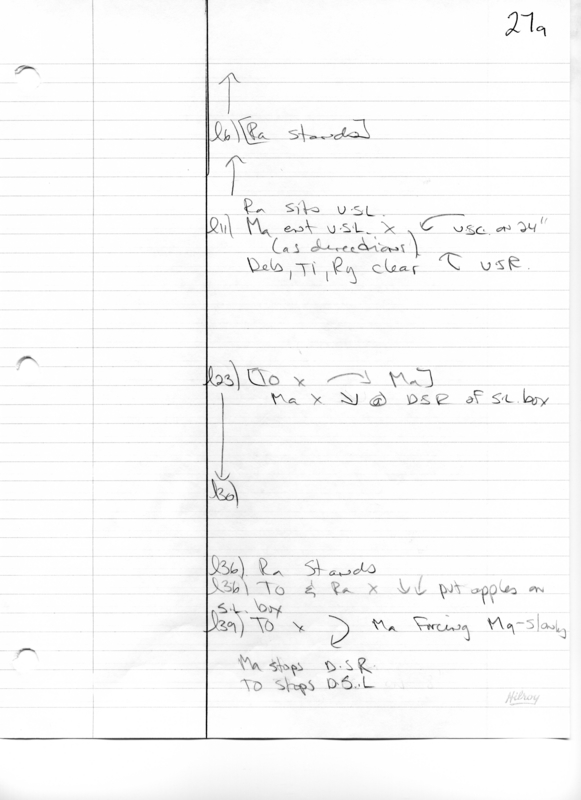 27a
l6) [Ra stands]
Ra sits U.S.L.
l11) Ma ent U.S.L. X ↙ USC. on 24"
(as directions)
Deb, Ti, Ry clear ↖ U.S.R.
l23) [TO x → Ma]
Ma X ↘ @ D.S.R of S.L. box
l30)
l36) Ra Stands
l36) TO & Ra X ↓↓ put apples on
S.L. box
l39) TO x Ma Forcing Ma-slowly
Ma stops D.S.R.
TO stops D.S.L
Hilroy